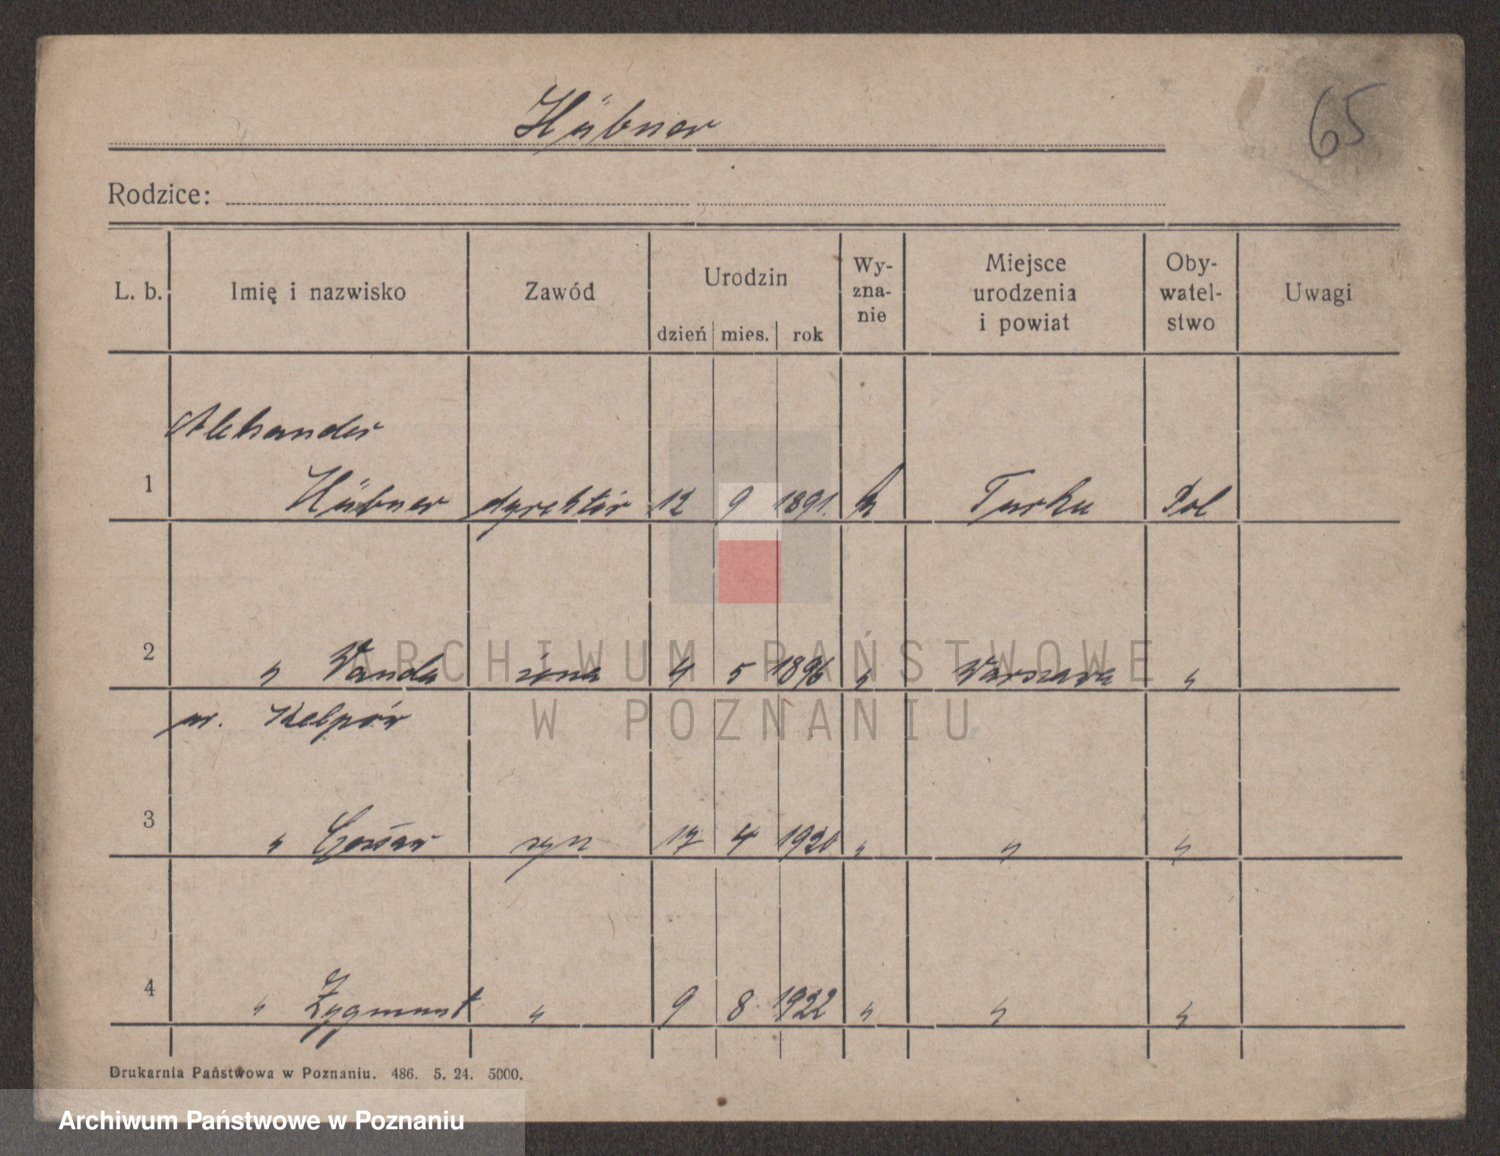 Hübner
65
Rodzice:
L. b. Imię i nazwisko Zawód Urodzin dzień mies. rok Wy-zna-nie Miejsce urodzenia i powiat Oby-watel-stwo Uwagi
Aleksander
1 Hübner dyrektór 12 9 1891. k Turku Pol
2 " Wanda żona 4 5 1896 " Warszawa "
ur.
3 " syn 17 4 1920 " " "
4 " Zygmunt " 9 8 1922 " " "
Drukarnia Państwowa w Poznaniu. 486. 5. 24. 5000.
ARCHIWUM PAŃSTWOWE
W POZNANIU
Archiwum Państwowe w Poznaniu